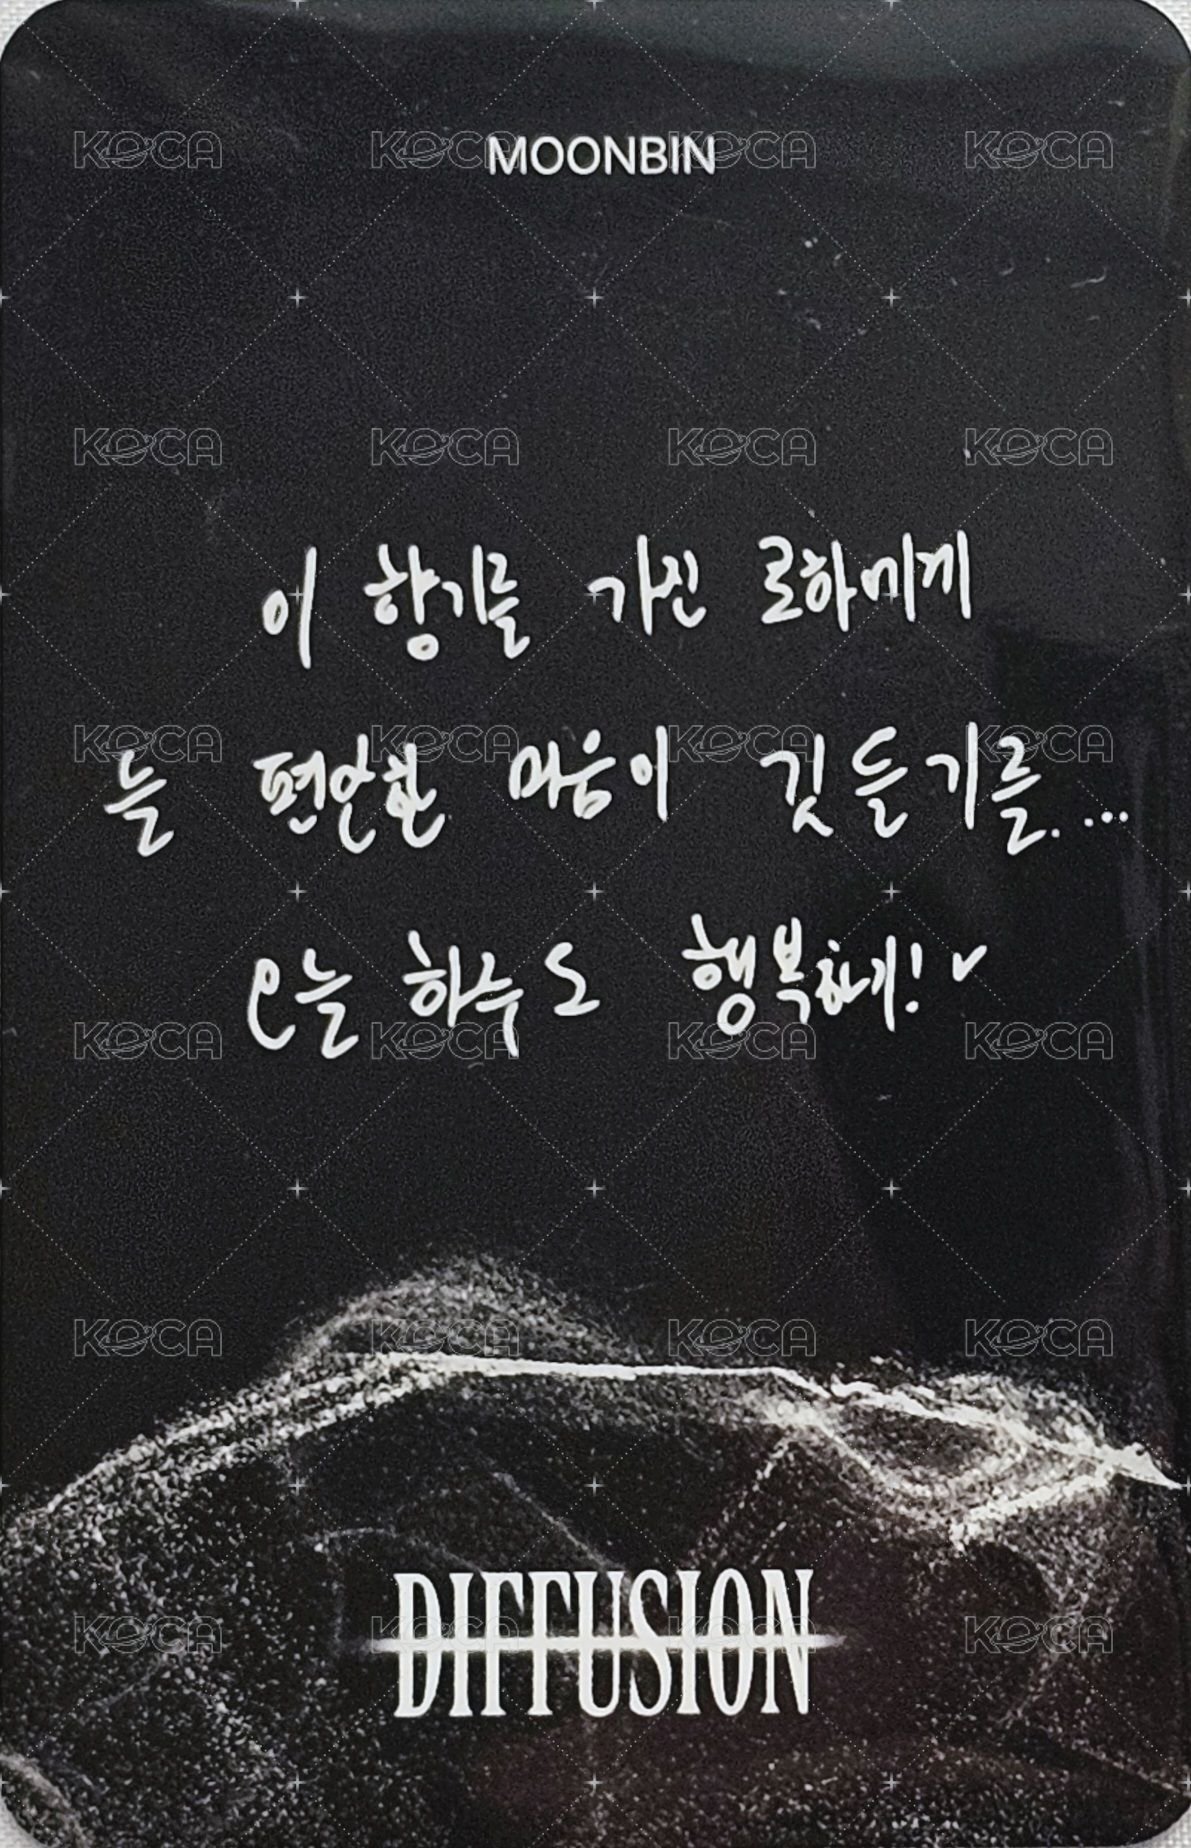 MOONBIN
이 향기를 가진 로하에게
늘 편안한 마음이 깃들기를. ...
오늘 하루도 행복하게!
DIFFUSION
KOCA